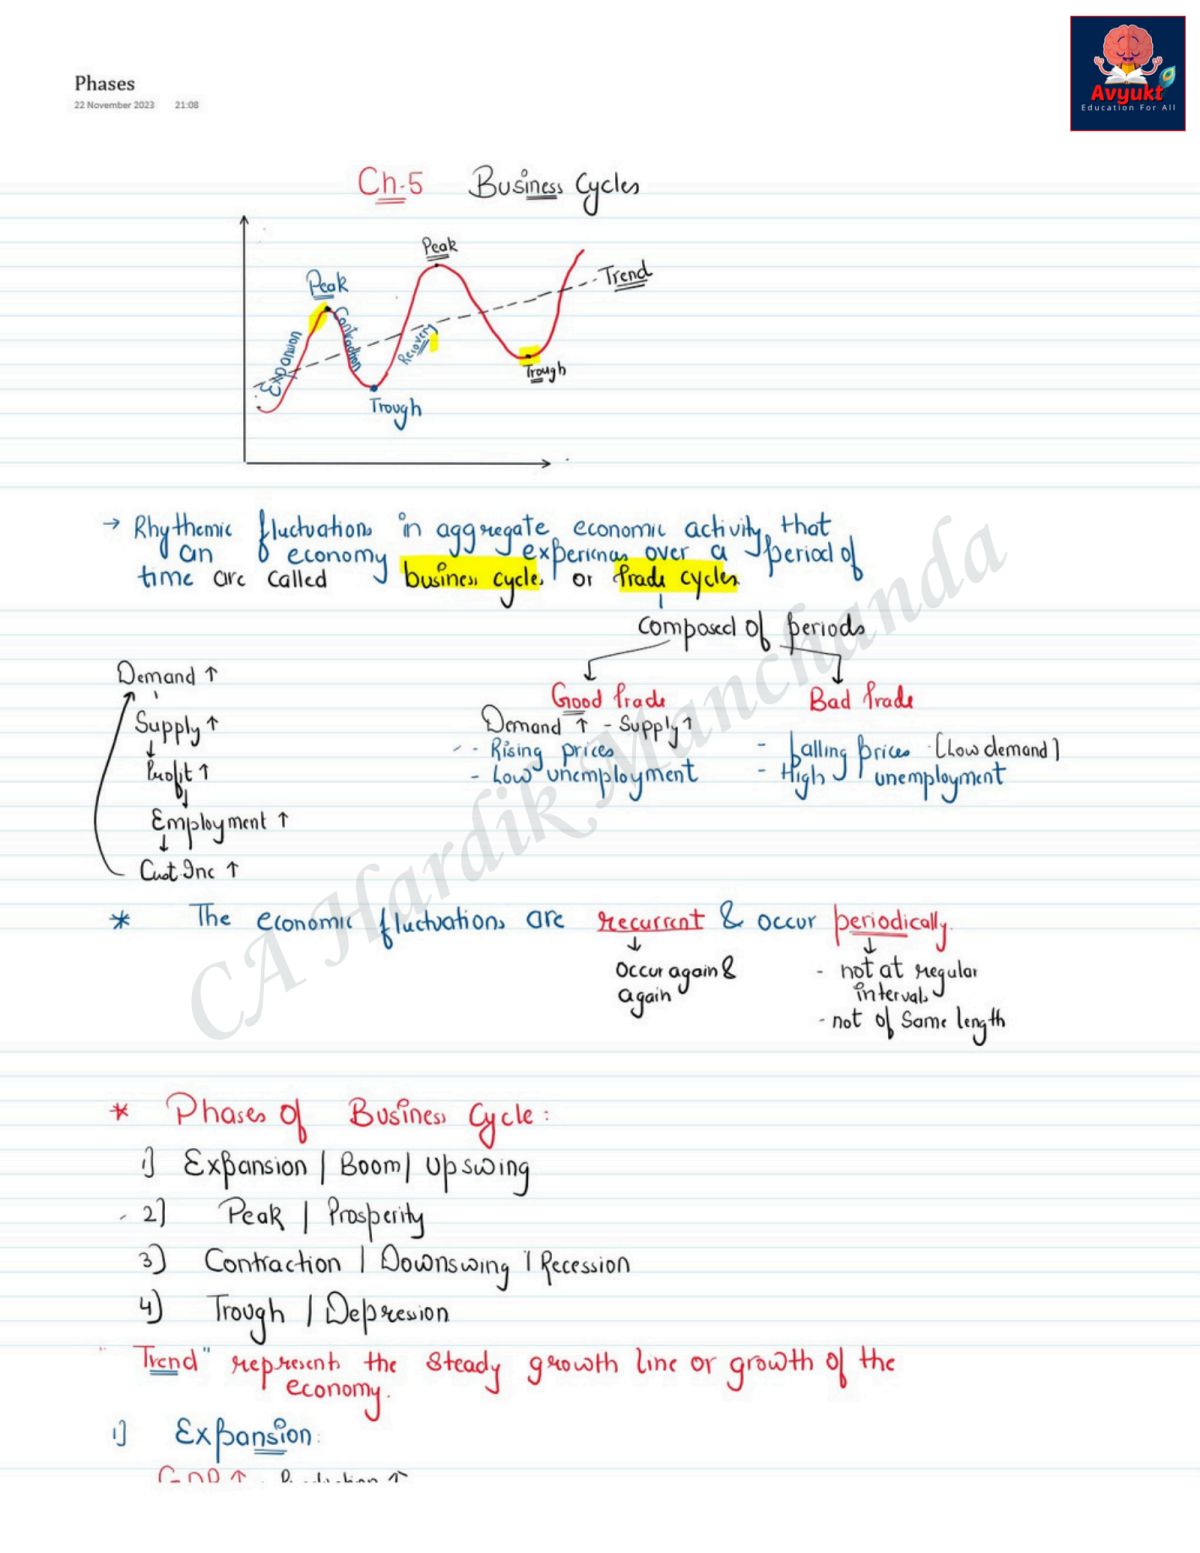 Phases
22 November 2023 21:08
Avyukt
Education For All
Ch-5 Business Cycles
Peak
Peak
Trend
Expansion
Contraction
Recovery
Trough
Trough
→ Rhythemic fluctuations in aggregate economic activity that
an economy experiences over a period of
time are called business cycles or Trade cycles
Composed of periods
Demand ↑
Supply ↑
Profit ↑
Employment ↑
Cust Inc ↑
Good Trade
Demand ↑ - Supply ↑
- Rising prices
- Low unemployment
Bad Trade
- falling prices (Low demand)
- High unemployment
* The economic fluctuations are recurrent & occur periodically.
Occur again &
again
- not at regular
intervals
- not of Same length
* Phases of Business Cycle:
1) Expansion | Boom | Upswing
2) Peak | Prosperity
3) Contraction | Downswing | Recession
4) Trough | Depression
"Trend" represents the steady growth line or growth of the
economy.
1) Expansion:
GDP ↑, Production ↑
CA Hardik Manchanda